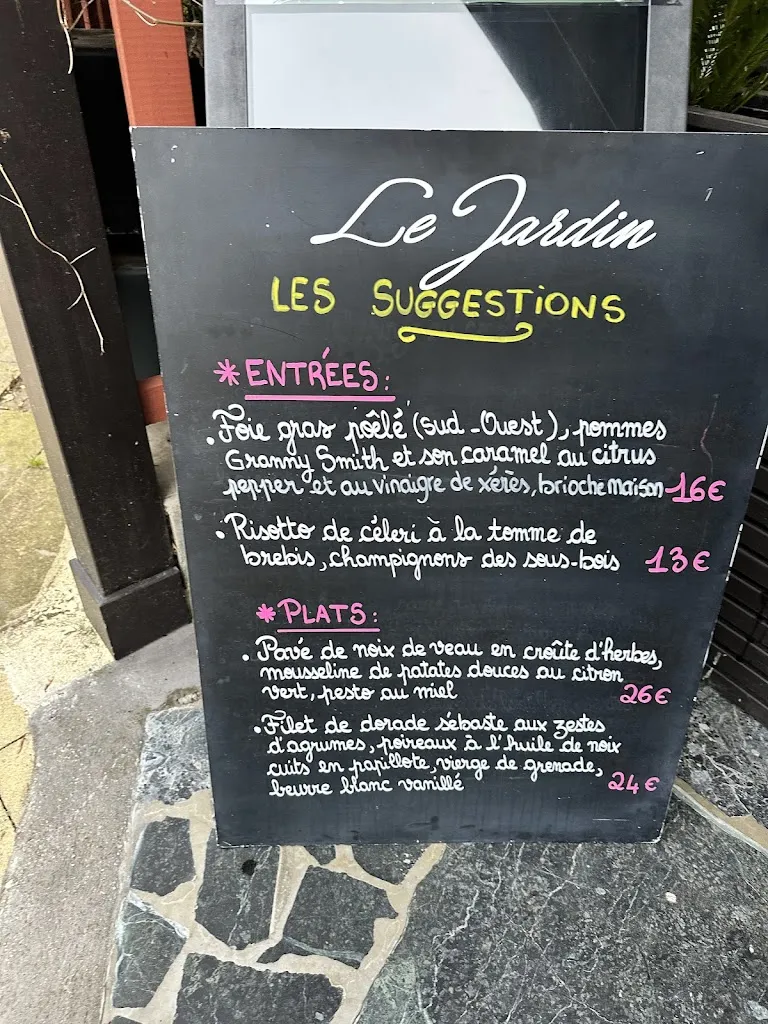 Le Jardin
LES SUGGESTIONS
* ENTRÉES:
• Foie gras poêlé (Sud-Ouest), pommes
Granny Smith et son caramel au citrus
pepper et au vinaigre de xérès, brioche maison 16€
• Risotto de céleri à la tomme de
brebis, champignons des sous-bois 13€
* PLATS:
• Pavé de noix de veau en croûte d'herbes,
mousseline de patates douces au citron
vert, pesto au miel 26€
• Filet de dorade sébaste aux zestes
d'agrumes, poireaux à l'huile de noix
cuits en papillote, vierge de grenade,
beurre blanc vanillé 24€